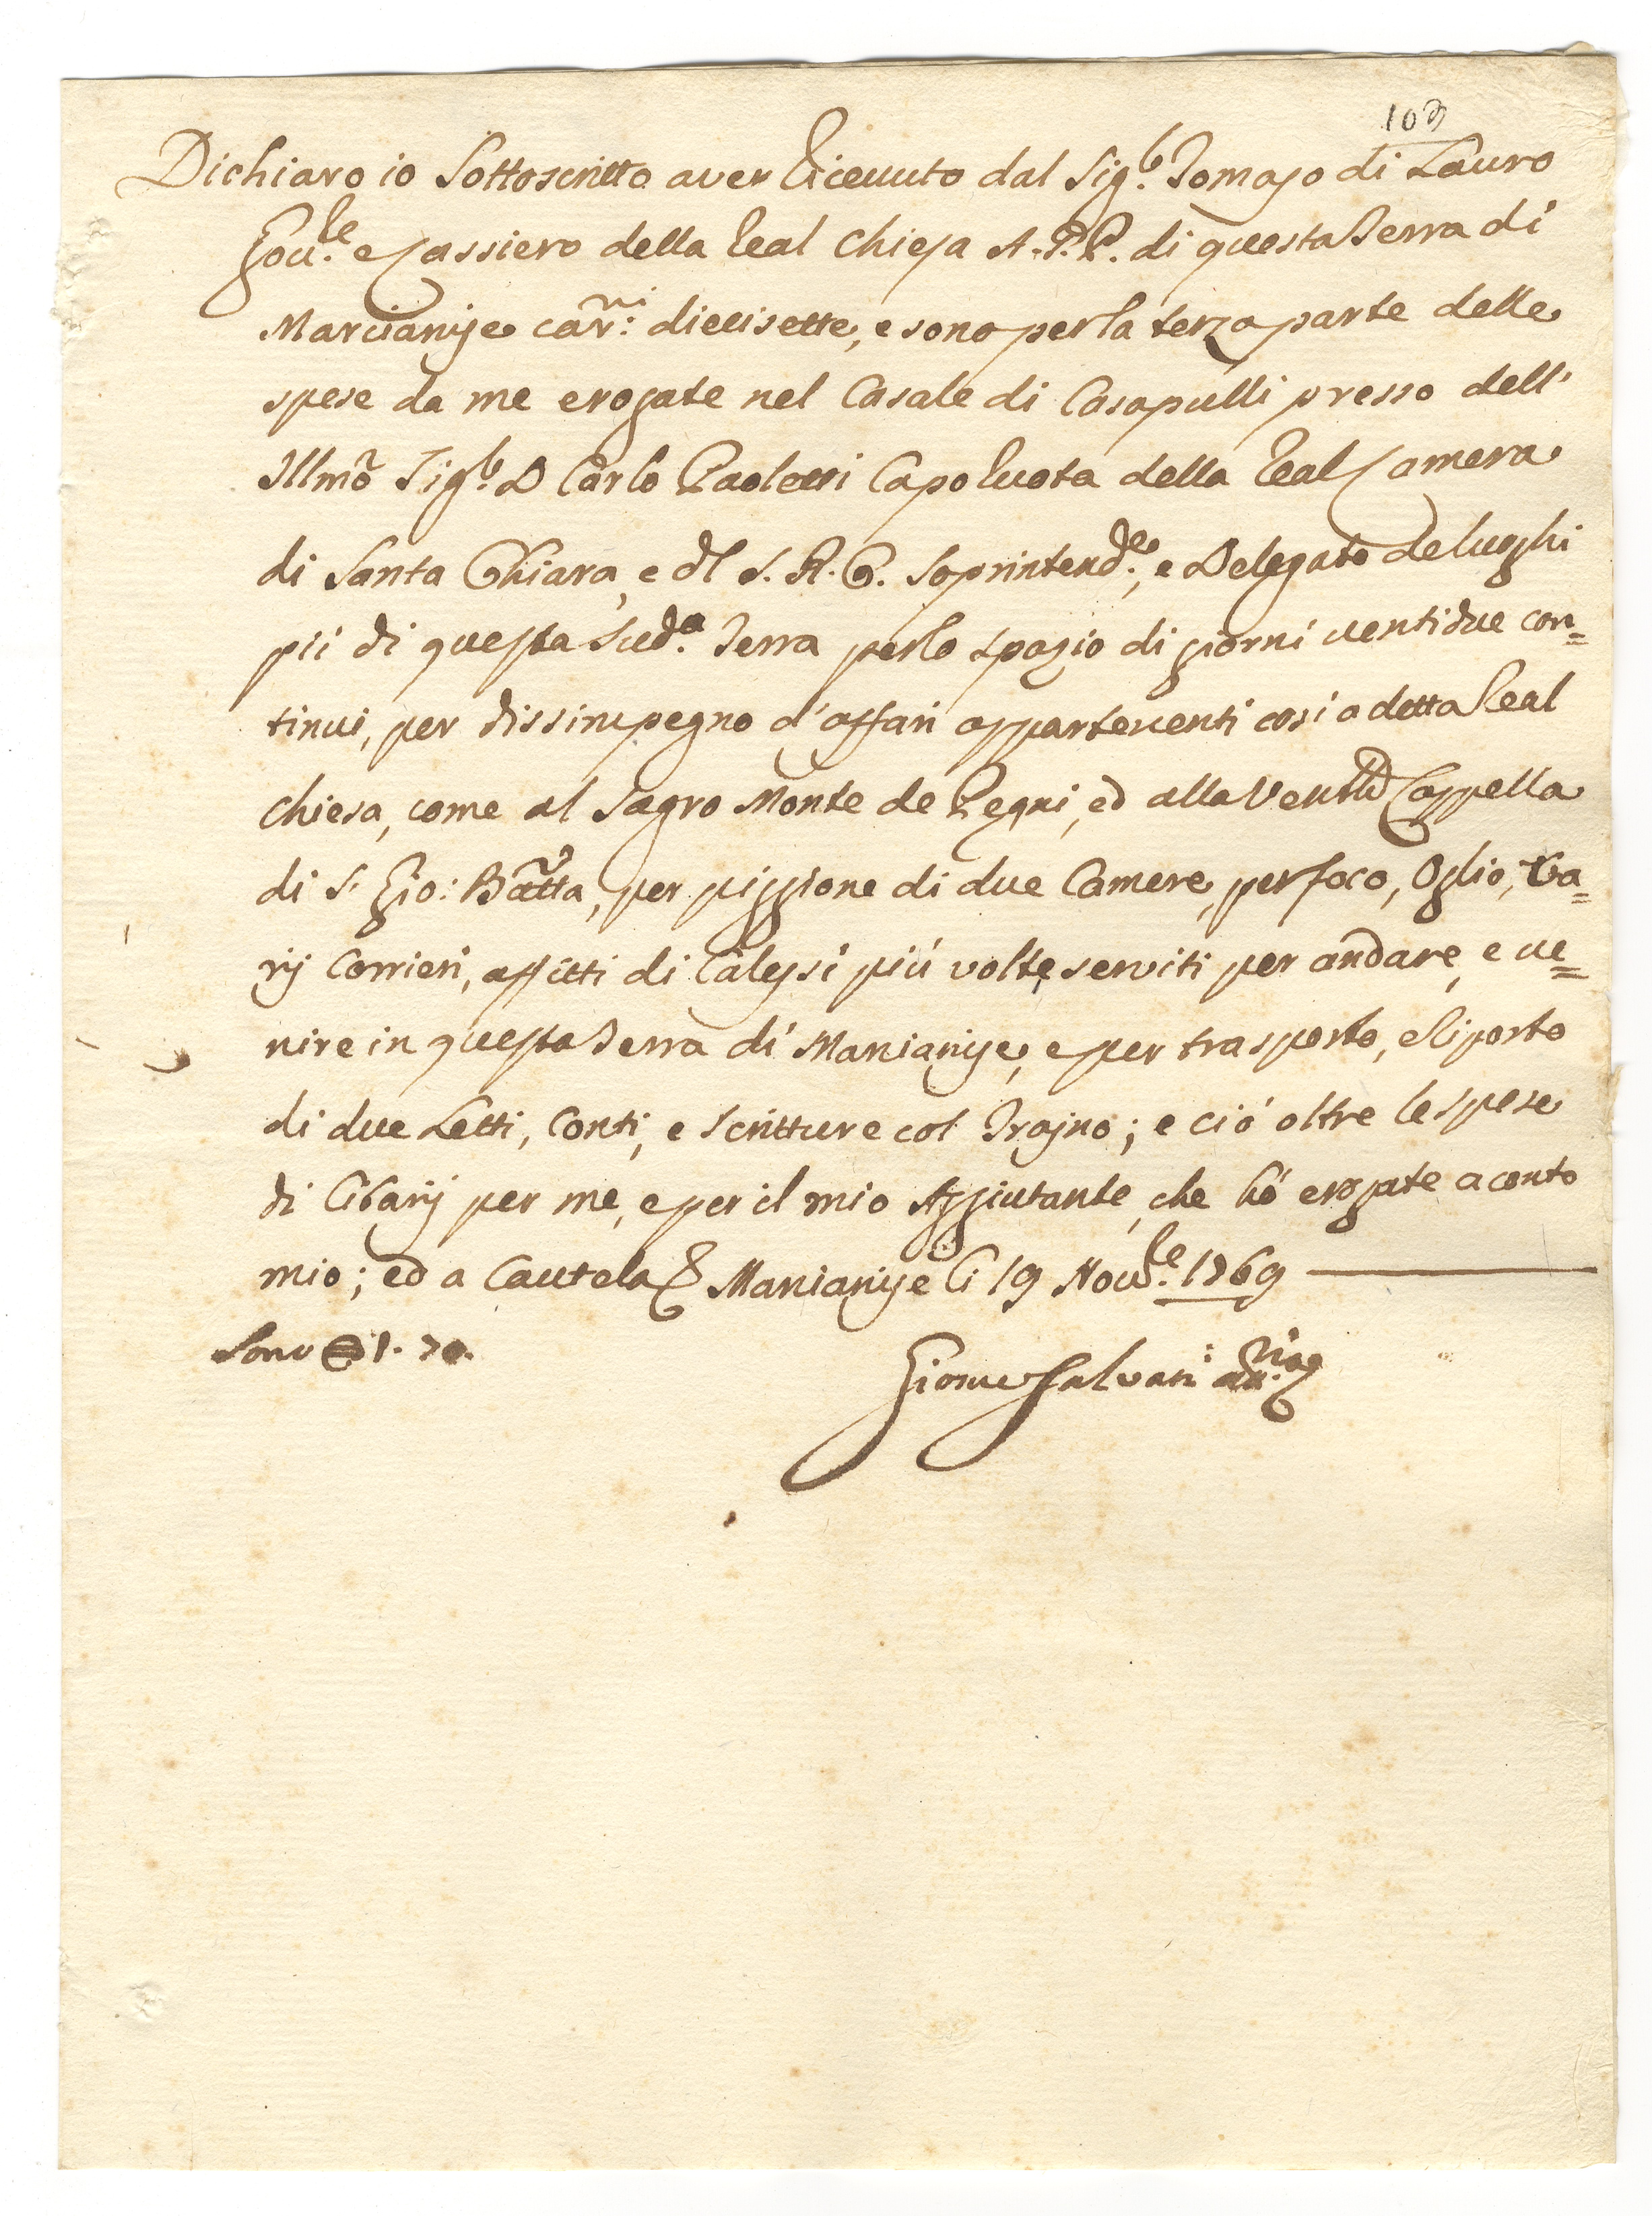 103
Dichiaro io Sottoscritto aver Ricevuto dal Sig.r Tomaso di Lauro
Gov.re e Cassiero della Real Chiesa A. G. P. di questa Terra di
Marcianise car.ni diecisette, e sono per la terza parte delle
spese da me erogate nel Casale di Casapulli presso dell'
Illmo Sig.r D Carlo Paoletti Capo Ruota della Real Camera
di Santa Chiara, e dl S. R. C. Soprintend.e, e Delegato de luoghi
pii di questa Sud.a Terra per lo spazio di giorni ventidue con=
tinui, per dissimpegno d'affari appartenenti così a detta Real
Chiesa, come al Sagro Monte de Pegni, ed alla Cappella
di S. Gio: Batta, per piggione di due Camere, per foco, Oglio, Va=
rij Corrieri, affitti di Calessi più volte serviti per andare, e ve=
nire in questa Terra di Marcianise, e per trasporto, e Riporto
di due Letti, Conti, e Scritture col Trajno; e ciò oltre le spese
di Cibarij per me, e per il mio Aggiutante, che hò erogate a conto
mio; ed a Cautela Marcianise li 19 Nov.re 1769
Sono 1. 70.
Salvati